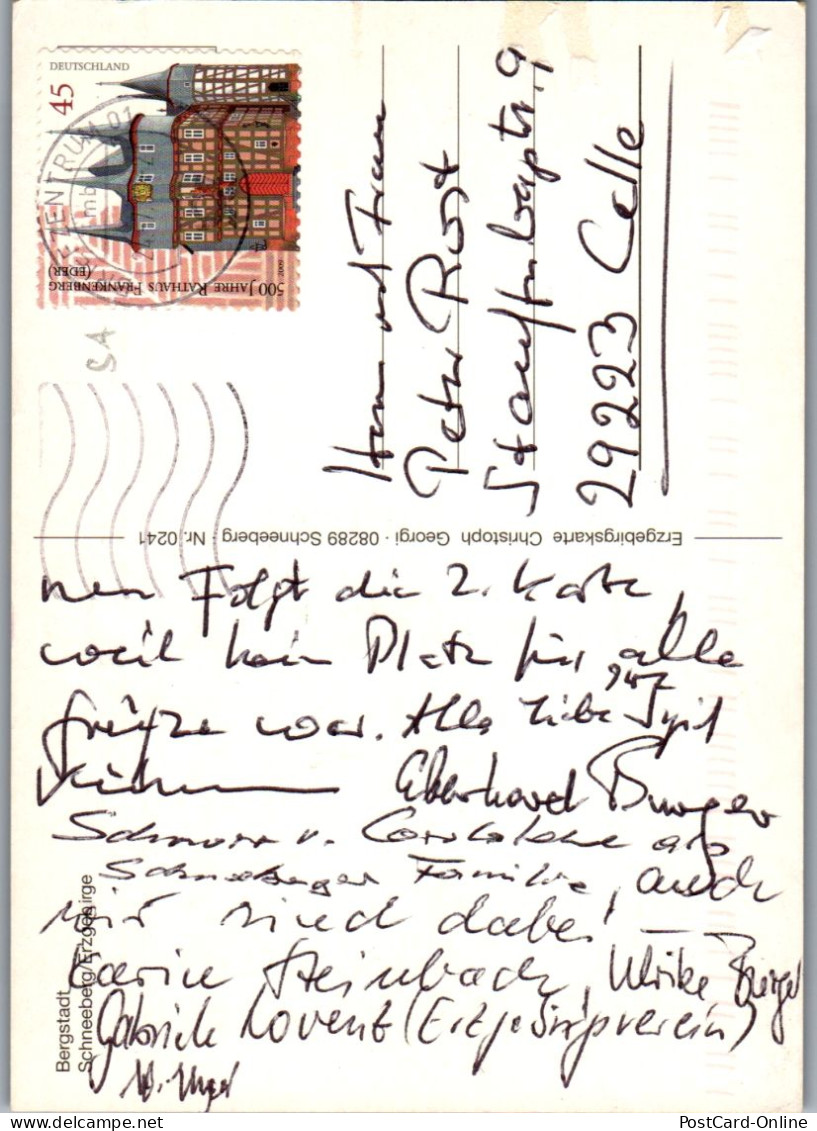 DEUTSCHLAND
45
500 JAHRE RATHAUS FRANKENBERG
(EDER)
2009
ZENTRUM 01
mb
SA
Herrn und Frau
Peter Rost
Stauffenbergstr. 9
29223 Celle
Erzgebirgskarte Christoph Georgi · 08289 Schneeberg · Nr. 0241
nun Folgt die 2. Karte,
weil kein Platz für alle
Grüße war. Alles Liebe
Eberhard Burger
Schnorr v. Carolsfeld aus
Schneeberger Familie, auch
wir sind dabei –
Karin Steinbach, Ulrike Burger
Gabriele Lovent (Erzgebirgsverein)
Bergstadt
Schneeberg/Erzgebirge
PostCard-Online